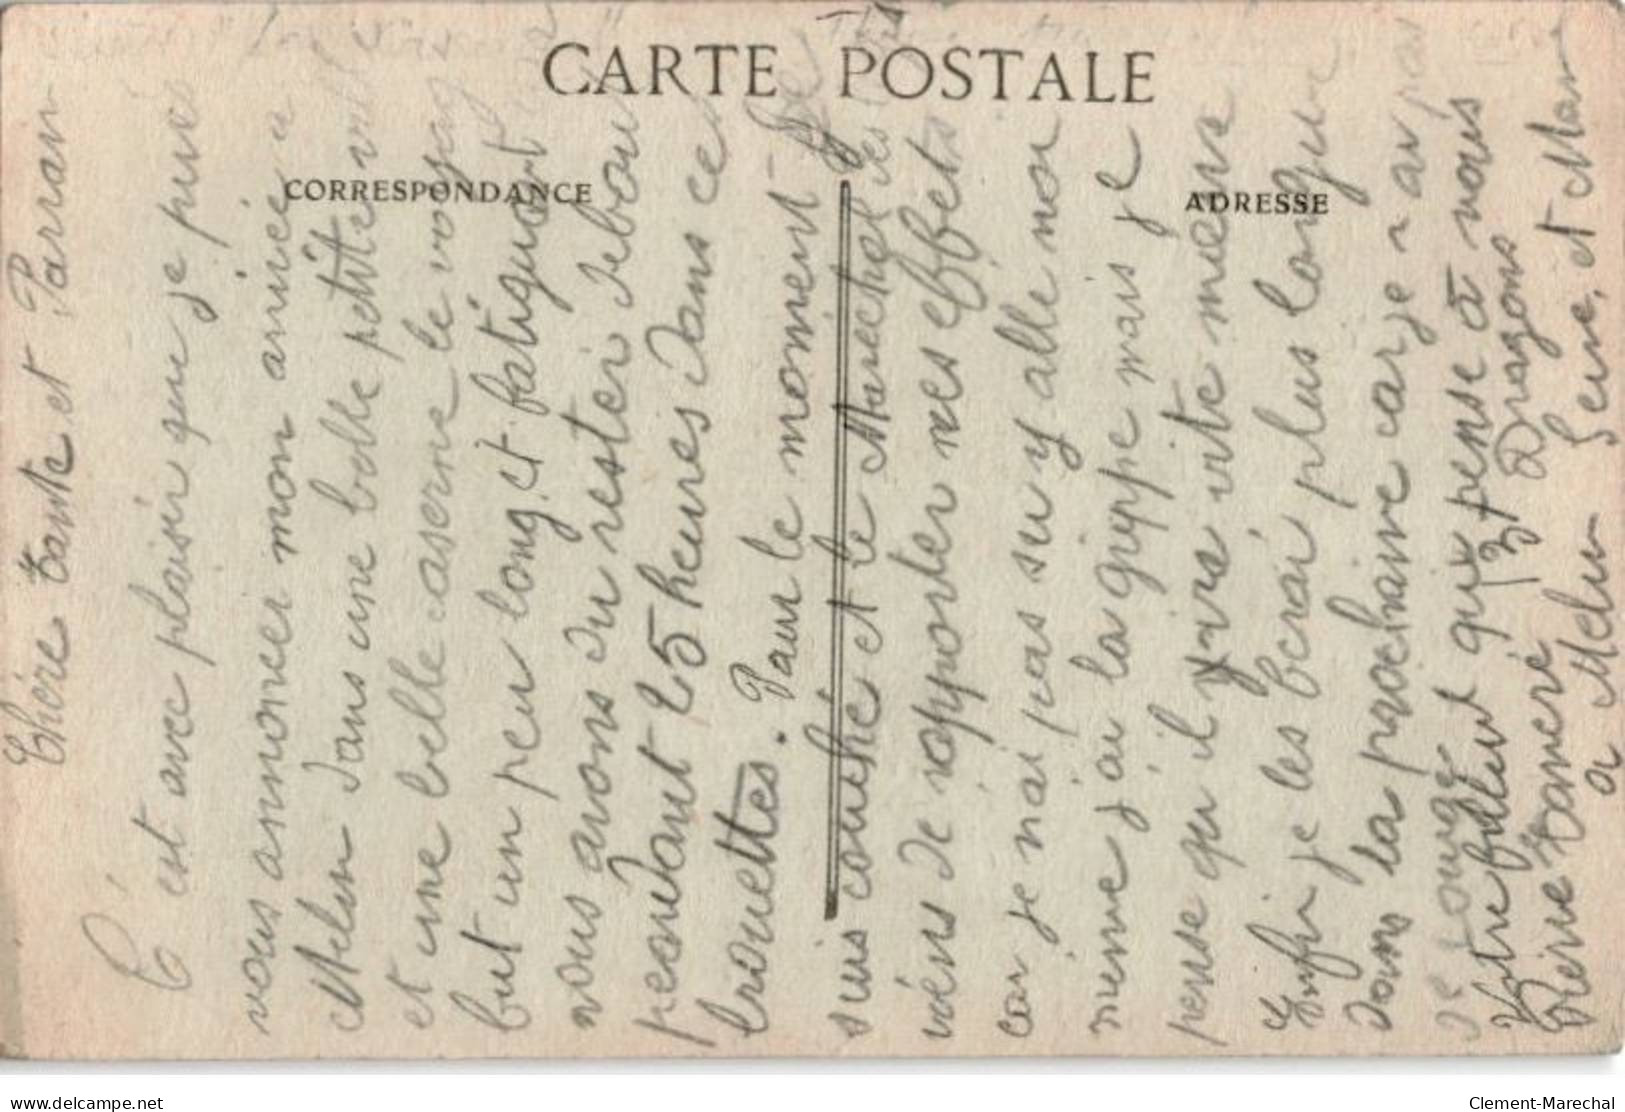 CARTE POSTALE
CORRESPONDANCE
ADRESSE
Chère tante et Parran
C'est avec plaisir que je puis
vous annoncer mon arrivée a
Melun dans une belle petite ville
et une belle caserne le voyage
fut un peu long et fatiguant
nous avons du rester debout
pendant 25 heures dans ces
brouettes. Pour le moment je
suis couché et le Marechal des
viens de rapporter mes effets
car je n'ai pas su y allé moi
meme j'ai la grippe mais je
pense qu'il yira vite mieux
Enfin je les berai plus longue
dans la prochaine car je n'ai pas
Votre filleul qui pense à vous
Pierre Tancré 13 Dragons
a Melun Seine, et Marn
Clement-Marechal
www.delcampe.net